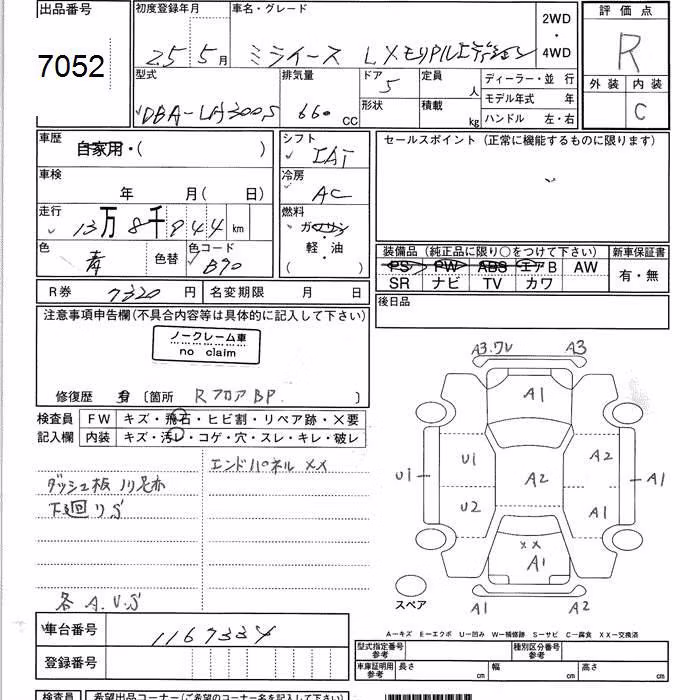 出品番号
7052
初度登録年月
25 5月
車名・グレード
ミライース LX メモリアルエディション
2WD
・
4WD
評価点
R
外装 内装
C
型式
DBA-LA300S
排気量
660 CC
ドア
5
形状
定員
人
積載
kg
ディーラー・並 行
モデル年式 年
ハンドル 左・右
車歴
自家用・( )
車検
年 月( 日)
走行
13万8千944 km
色
青
色替
色コード
B90
シフト
IAT
冷房
AC
燃料
ガソリン
・
軽・油
( )
セールスポイント(正常に機能するものに限ります)
装備品(純正品に限り〇をつけて下さい)
PS PW ABS エアB AW
SR ナビ TV カワ
新車保証書
有・無
後日品
R券 7320 円
名変期限 月 日
注意事項申告欄(不具合内容等は具体的に記入して下さい)
ノークレーム車
no claim
修復歴 有 〔箇所 Rフロア BP 〕
検査員 FW キズ・飛石・ヒビ割・リペア跡・×要
記入欄 内装 キズ・汚レ・コゲ・穴・スレ・キレ・破レ
エンドパネル XX
ダッシュ板 ノリ足赤
下廻りS
各 A.U.S
A3.ワレ A3
A1
U1 A2
U1 A2 A1
U2 A1
XX
A1
スペア
A1 A2
A-キズ E-エクボ U-凹み W-補修跡 S-サビ C-腐食 XX-交換済
車台番号
1167334
登録番号
型式指定番号
参考
種別区分番号
参考
車庫証明用
参考
長さ cm 幅 cm 高さ cm
検査員 希望出品コーナー(ご希望のコーナー名を記入して下さい)